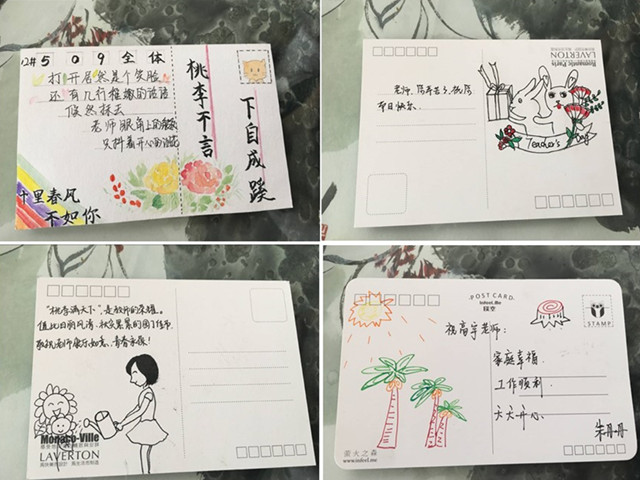 12#509全体
打开居然是个笑脸
还有几行稚嫩的话语
倏然抹去
老师眼角上的
只抖着开心的泪花
十里春风
不如你
桃李不言
下自成蹊
Romantic Paris
LAVERTON
老师,您辛苦了,祝您
节日快乐.
Teacher's
Day
"桃李满天下",是教师的荣耀。
值此日丽风清、秋实累累的园丁佳节,
敬祝老师康乐如意,青春永保!
Monaco-Ville
LAVERTON
POST CARD
Infeel.Me
STAMP
祝高宇老师:
家庭幸福
工作顺利
天天开心.
朱丹丹
萤火之森
www.infeel.me